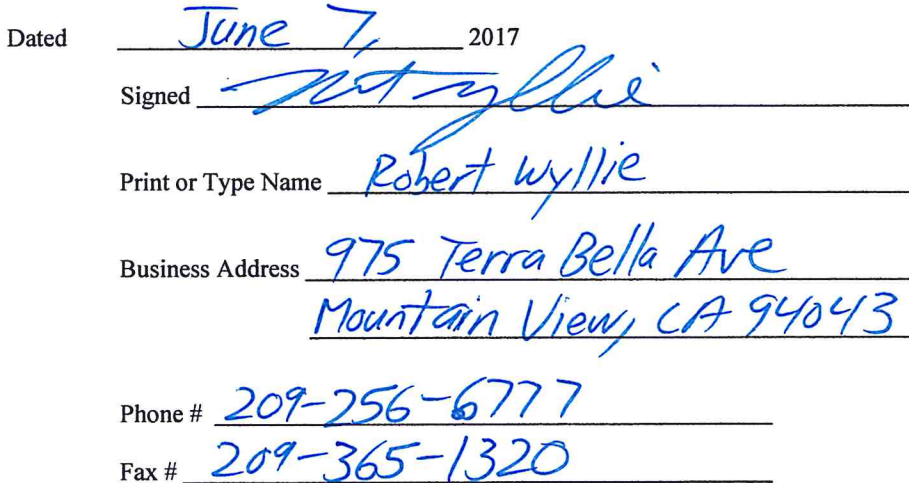 Dated June 7, 2017
Signed
Print or Type Name Robert Wyllie
Business Address 975 Terra Bella Ave
Mountain View, CA 94043
Phone # 209-256-6777
Fax # 209-365-1320